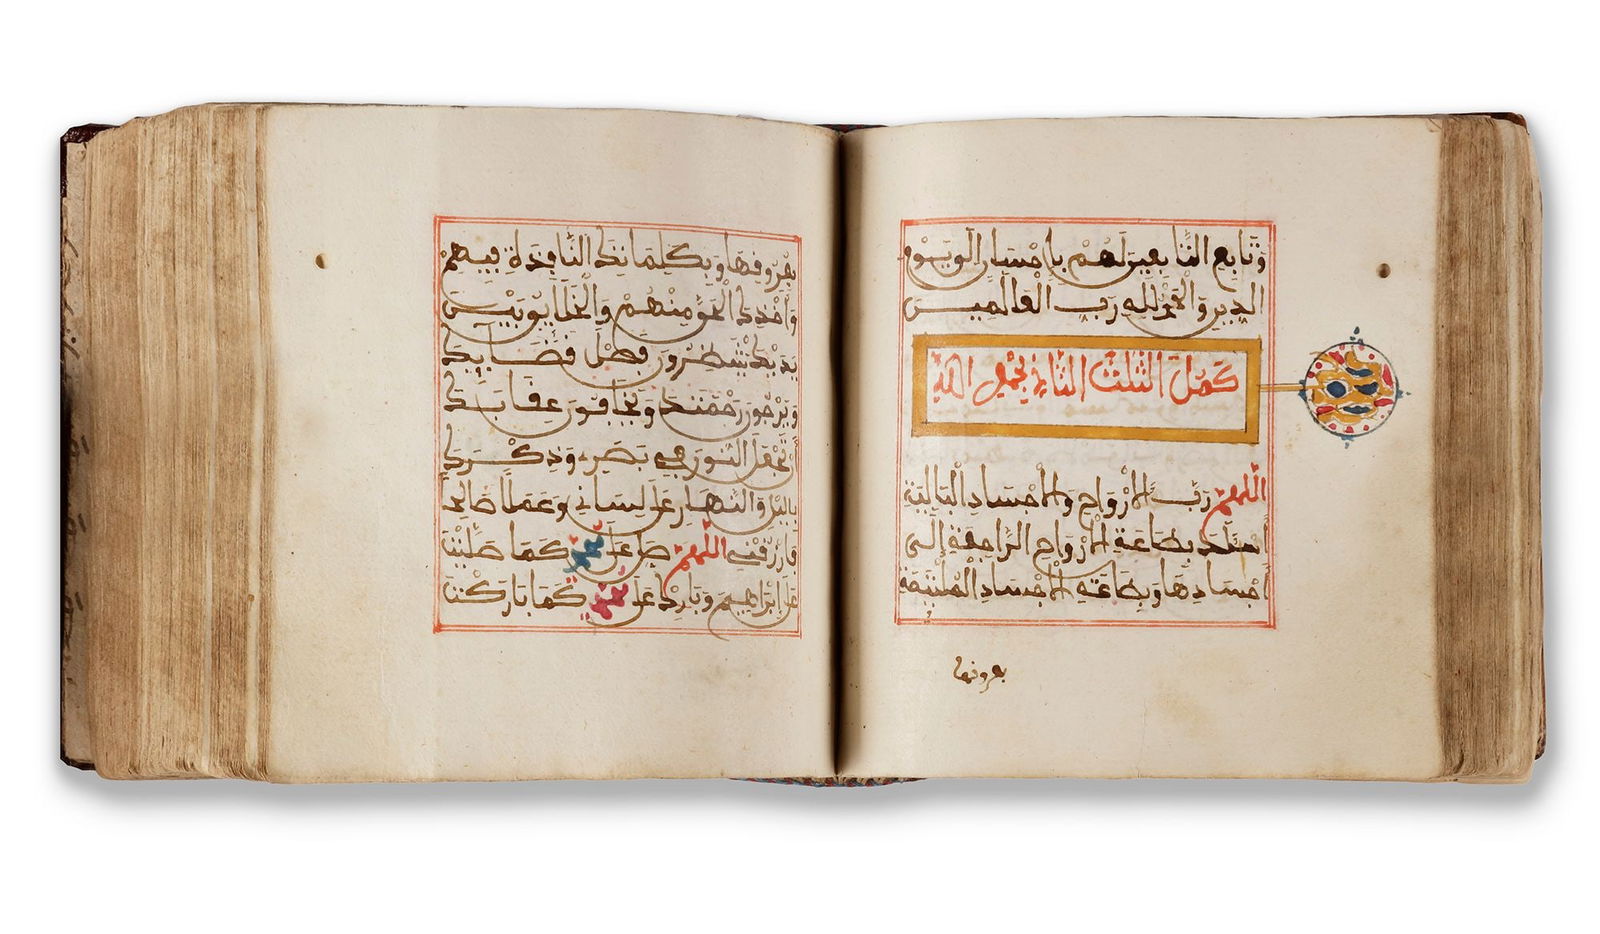 وتابع التابعين لهم بإحسان إلى يوم
الدين والحمد لله رب العالمين
كمل الثلث الثاني بحمد الله
اللهم رب الأرواح والأجساد البالية
أسئلك بطاعة الأرواح الراجعة إلى
أجسادها وبطاعة الأجساد الملتئمة
بعروقها
بعروقها وبكلماتك النافذة فيهم
وأخذك الحق منهم والخلائق بين
يديك ينتظرون فصل قضائك
ويرجون رحمتك ويخافون عقابك
أن تجعل النور في بصري وذكرك
بالليل والنهار على لساني وعملا صالحا
فارزقني اللهم صل على محمد كما صليت
على إبراهيم وبارك على محمد كما باركت